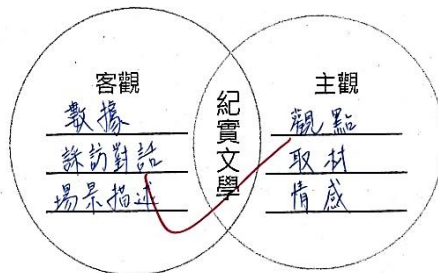 客觀
數據
訪對話
場景描述
紀實文學
主觀
觀點
取材
情感